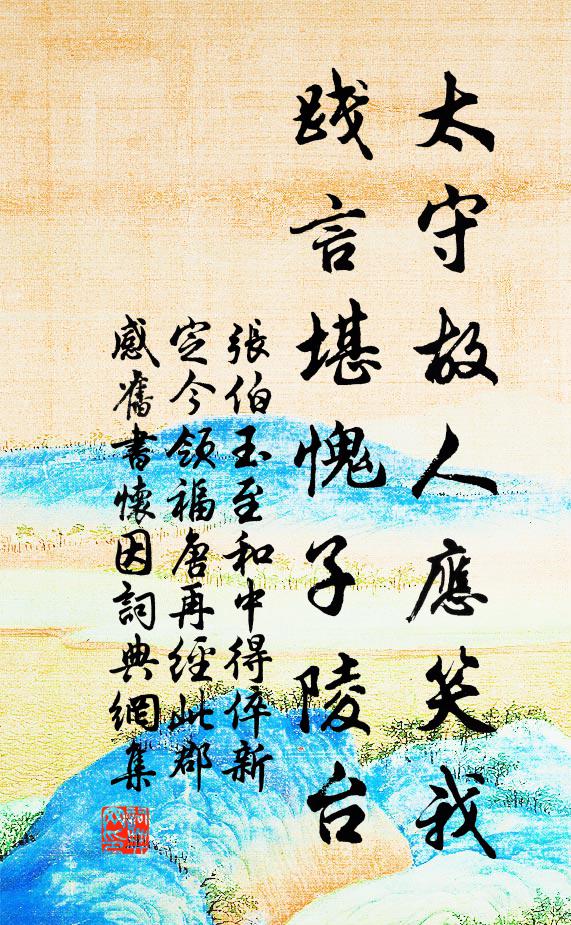 太守故人應笑我
踐言堪愧子陵台
張伯玉至和中得倅新
定今領福唐再經此郡
感舊書懷因詞典網集